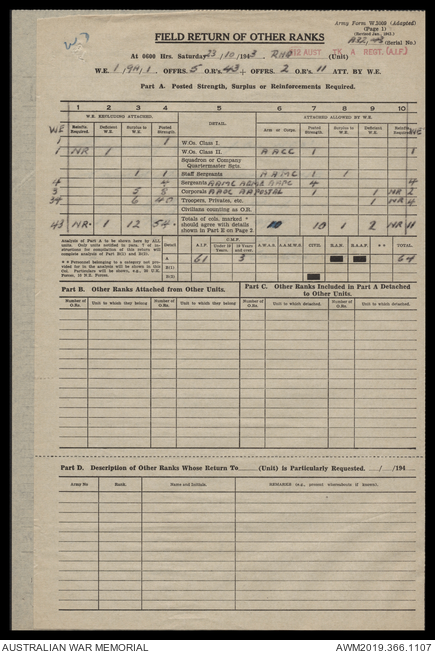 Army Form W.3009 (Adapted)
(Page 1)
(Revised Jan., 1942.)
(Serial No.)
FIELD RETURN OF OTHER RANKS
At 0600 Hrs. Saturday 23/10/1943 RHQ (Unit)
AUST. TK. A REGT. (A.I.F.)
W.E. 1/9A/1. OFFRS. 5 O.R's. 43 + OFFRS. 2 O.R's 11 ATT. BY W.E.
Part A. Posted Strength, Surplus or Reinforcements Required.
1 2 3 4 5 6 7 8 9 10
W.E. EXCLUDING ATTACHED. DETAIL. ATTACHED ALLOWED BY W.E.
WE Reinfts. Required. Deficient W.E. Surplus to W.E. Posted Strength. Arm or Corps. Posted Strength. Surplus to W.E. Deficient W.E. Reinfts. Required. WE
1 1 W.Os. Class I.
1 NR 1 W.Os. Class II. AACC 1 1
Squadron or Company Quartermaster Sgts.
1 1 Staff Sergeants AAMC 1 1
4 4 Sergeants AAMC AEME AAPC 4 4
3 5 8 Corporals AAOC AAPOSTAL 1 1 NR 2
34 6 40 Troopers, Privates, etc. 1 NR 4
Civilians counting as O.R.
43 NR. 1 12 54 Totals of cols. marked * should agree with details shown in Part E on Page 2. 10 10 1 2 NR 11
Analysis of Part A to be shown here by ALL
Detail A.I.F. C.M.F. Under 19 Years. 19 Years and over. A.W.A.S. A.A.M.W.S. CIVIL. R.A.N. R.A.A.F. * * TOTAL
A 61 3 64
B(1)
B(2)
Part B. Other Ranks Attached from Other Units.
Part C. Other Ranks Included in Part A Detached to Other Units.
Number of O.Rs. Unit to which they belong Number of O.Rs. Unit to which they belong Number of O.Rs. Unit to which detached. Number of O.Rs. Unit to which detached.
Part D. Description of Other Ranks Whose Return To (Unit) is Particularly Requested. / /194
Army No Rank. Name and Initials. REMARKS (e.g., present whereabouts if known).
AUSTRALIAN WAR MEMORIAL
AWM2019.366.1107